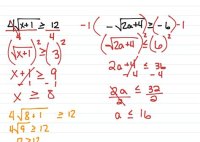 4√(x+1) ≥ 12
4 4
(√(x+1))² ≥ (3)²
x+1 ≥ 9
-1 -1
x ≥ 8
4√(8+1) ≥ 12
4√9 ≥ 12
-1(-√(2a+4) ≥ (-6)-1
(√(2a+4))² ≤ (6)²
2a+4 ≤ 36
-4 -4
2a ≤ 32
2 2
a ≤ 16